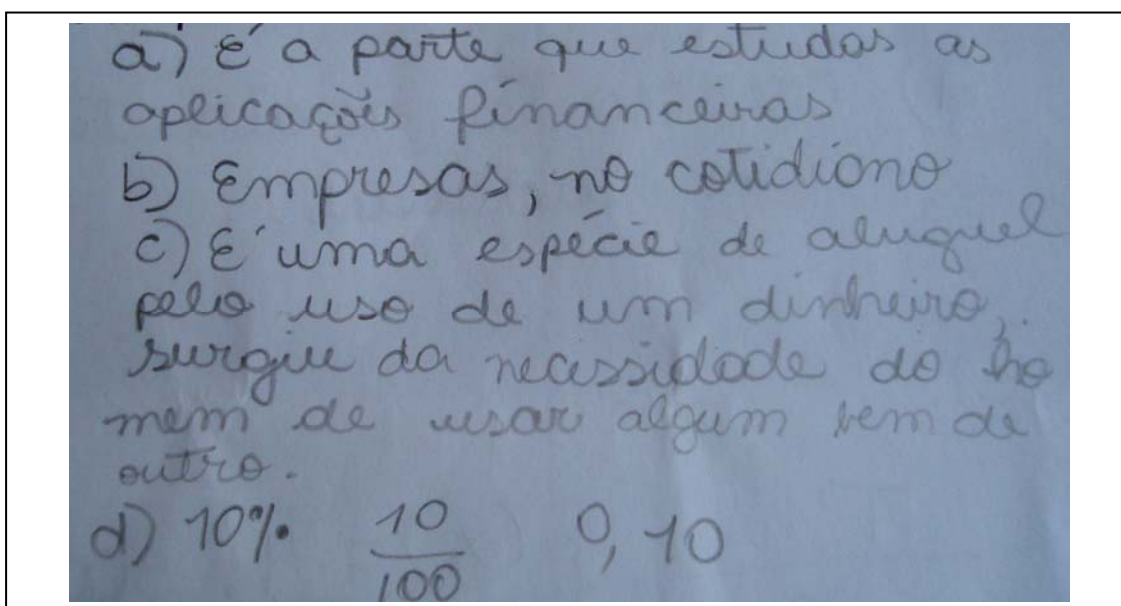 a) É a parte que estudas as
aplicações financeiras
b) Empresas, no cotidiano
c) É uma espécie de aluguel
pelo uso de um dinheiro,
surgiu da necessidade do ho
mem de usar algum bem de
outro.
d) 10% 10/100 0,10